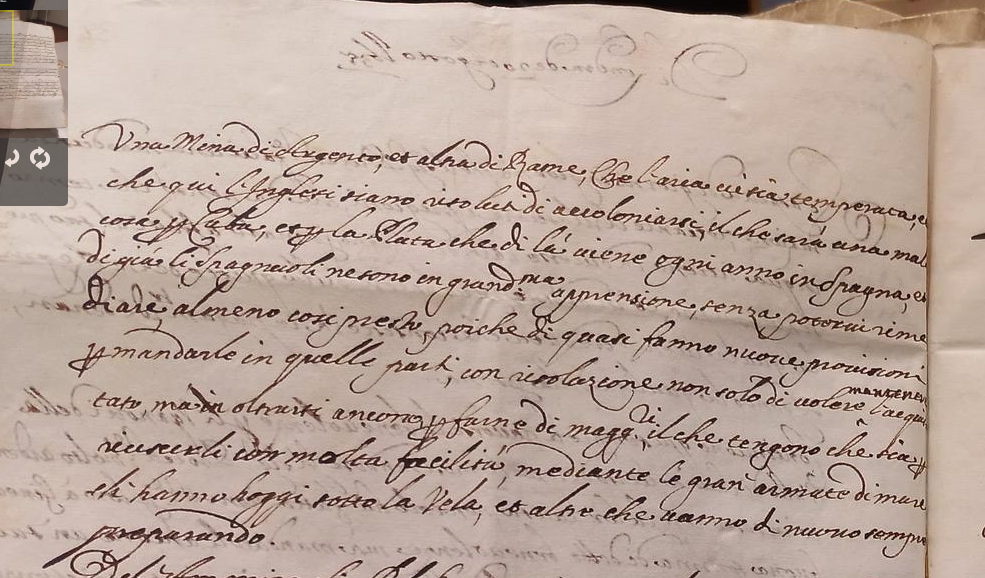 Vna Mina di Argento, et altra di Rame, Che l'aria ui sia temperata, et
che qui l'Inglesi siano risoluti di accoloniarsi, il che sarà una mal
cosa pr Cuba, et pr la Plata che di là uiene ogni anno in Spagna, et
di già li Spagnuoli ne sono in grandma apprensione, senza poterui rime
diare, almeno così presto, poiche di quasi fanno nuoue prouisioni
pr mandarle in quelle parti, con risoluzione non solo di uolere mantener l'acqui
tato, ma di oltrarsi ancora pr farne di maggri, il che tengono che sia pr
riuscirli con molta facilità, mediante le gran armate di mare
che hanno hoggi sotto la Vela, et altre che uanno di nuouo sempre
preparando.